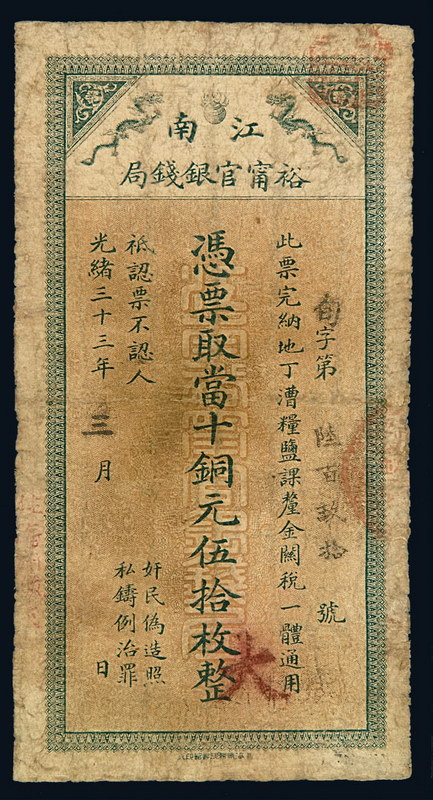 江南
裕甯官銀錢局
字第 陸百玖拾 號
此票完納地丁漕糧鹽課釐金關稅一體通用
憑票取當十銅元伍拾枚整
祗認票不認人
奸民偽造照
私鑄例治罪
光緒三十三年 三 月 日
大